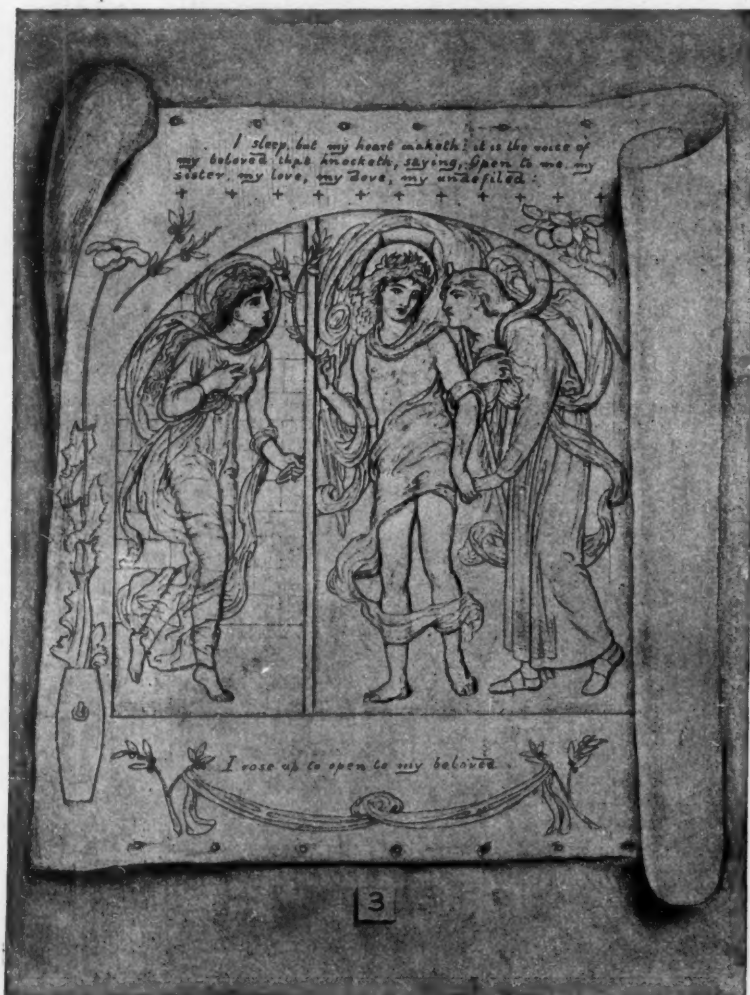 I sleep, but my heart waketh: it is the voice of
my beloved that knocketh, saying, Open to me, my
sister, my love, my dove, my undefiled:
I rose up to open to my beloved.
3